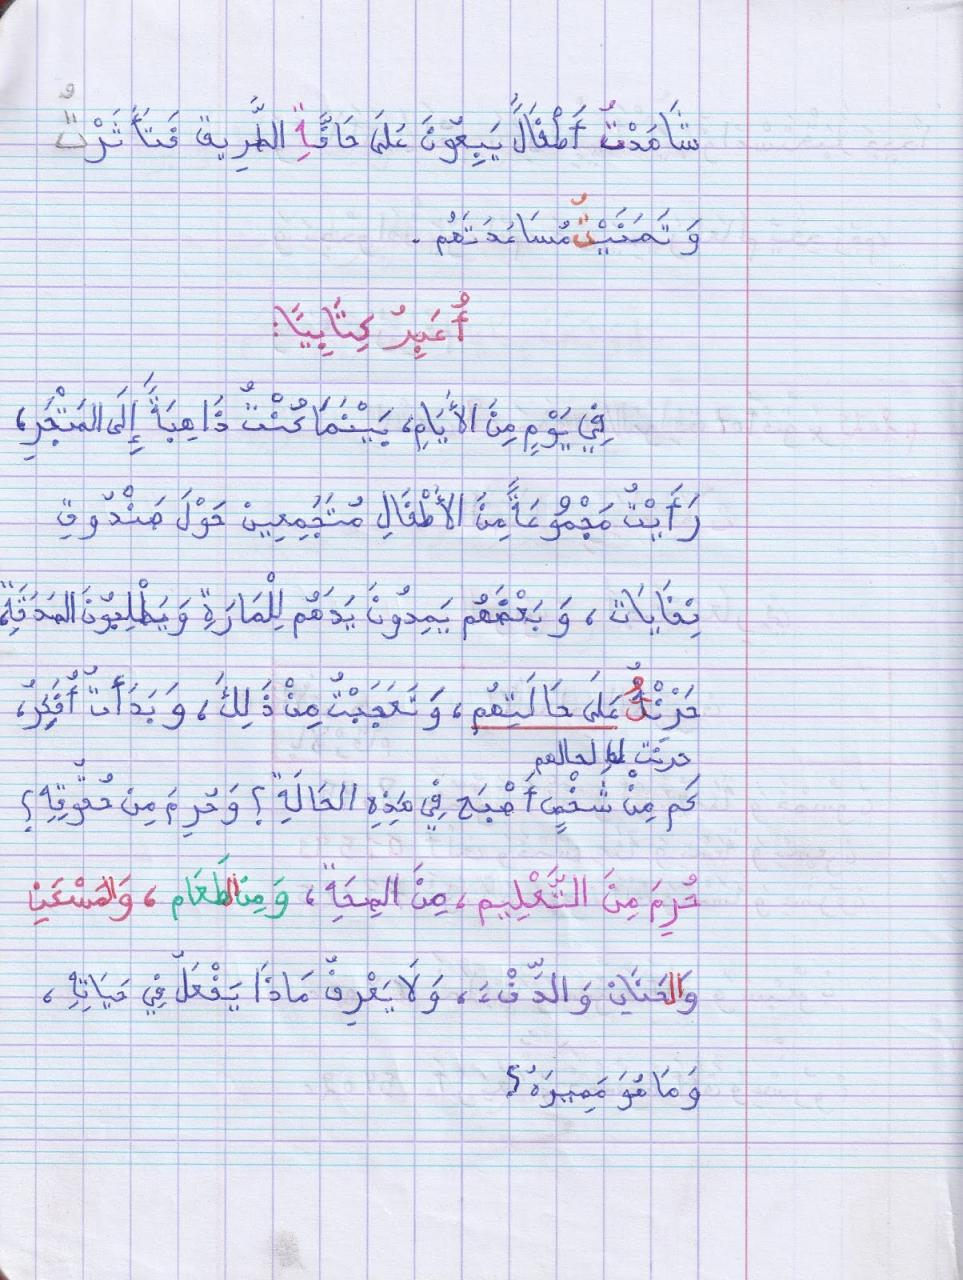 شَاهَدْتُ أَطْفَالً يَبِيعُونَ عَلَى حَافَّةِ الطَّرِيق فَتَأَثَرْتُ
وَ تَمَنَيْتُ مُسَاعَدَتَهُم .
أُعَبِرُ كِتَابِيًا:
فِي يَوْمٍ مِنَ الأَيَامِ، بَيْنَمَا كُنْتُ ذَاهِبَةً إِلَى المَتْجَرِ،
رَأَيْتُ مَجْمُوعَةً مِنَ الأَطْفَالِ مُتَجَمِعِين حَوْلَ صَنْدُوقِ
نِفَايَات ، وَ بَعْضَهُم يَمِدُونَ يَدَهُم لِلْمَارَةِ وَ يَطْلِبُونَ الصَدَقَةِ،
حَزَنْتُ عَلَى حَالَتِهُم ، وَ تَعَجَبْتُ مِنْ ذَلِكَ، وَ بَدَأْتُ أُفَكِرُ،
حزنت لحالهم
كَم مِنْ شَخْصٍ أَصْبَح فِي هَذِهِ الحَالَةِ ؟ وَ حُرِمَ مِن حُقُوقِهِ ؟
حُرِمَ مِنَ التَّعْلِيم ، مِنَ الصِحَةِ ، وَ مِنَ الطَعَام ، وَالمَسْكَنِ
وَالحَنَانِ وَ الدِّفْءِ، وَ لَا يَعْرِفُ مَاذَا يَفْعَلُ فِي حَيَاتِهِ ،
وَ مَا هُوَ مَصِيرَهُ ؟